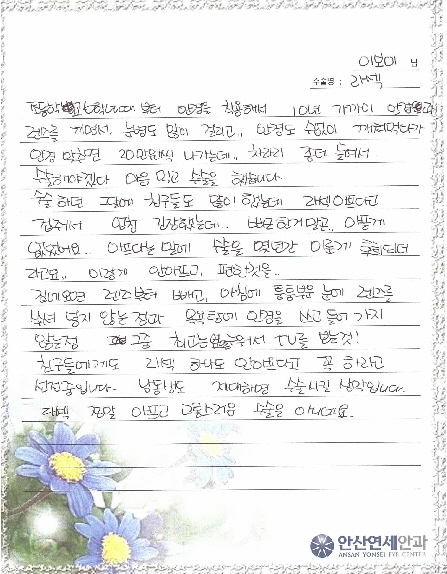 이보미 님
수술명 : 라섹
초등학교 2학년때 부터 안경을 착용해서 10년 가까이 안경과
렌즈를 끼면서, 눈병도 많이 걸리고,, 안경도 수없이 깨먹었다가
안경 맞출면 20만원씩 나가는데.. 차라리 좀더 들여서
수술해야겠다 마음 먹고 수술을 했습니다.
수술 하면 그전에 친구들도 많이 했는데 라섹 아프다고
겁줘서 엄청 긴장했는데.. 뻐근한거 말고, 아픈게
없었어요.. 아프다는 말에 수술을 몇년간 미룬게 후회되더
라고요.. 이렇게 안아프고, 편한것을..
집에오면 렌즈부터 빼고, 아침에 퉁퉁부은 눈에 렌즈를
쑤셔 넣지 않는점과 목욕탕에 안경을 쓰고 들어가지
않는점 그중 최고는 누워서 TV를 보는것!
친구들에게도 라섹 하나도 안아프다고 꼭 하라고
선전중입니다. 남동생도 제대하면 수술시킬 생각입니다.
라섹 정말 아프고 고통스러운 수술은 아니에요.
안산연세안과
ANSAN YONSEI EYE CENTER